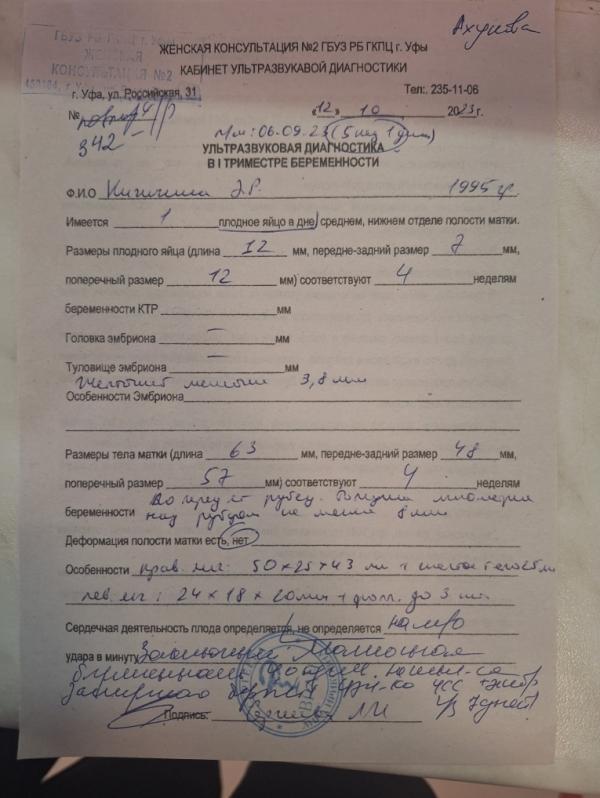 ГБУЗ РБ ГКПЦ г. Уфы
ЖЕНСКАЯ
КОНСУЛЬТАЦИЯ №2
ЖЕНСКАЯ КОНСУЛЬТАЦИЯ №2 ГБУЗ РБ ГКПЦ г. Уфы
КАБИНЕТ УЛЬТРАЗВУКАВОЙ ДИАГНОСТИКИ
г. Уфа, ул. Российская, 31 Тел:. 235-11-06
№ «12» 10 2023г.
342
П/м: 06.09.23 (5 нед 1 день)
УЛЬТРАЗВУКОВАЯ ДИАГНОСТИКА
В I ТРИМЕСТРЕ БЕРЕМЕННОСТИ
Ф.И.О Э.Р. 1995 гр
Имеется 1 плодное яйцо в дне, среднем, нижнем отделе полости матки.
Размеры плодного яйца (длина 12 мм, передне-задний размер 7 мм,
поперечный размер 12 мм) соответствуют 4 неделям
беременности КТР мм
Головка эмбриона — мм
Туловище эмбриона — мм
Желточный мешочек 3,8 мм
Особенности Эмбриона
Размеры тела матки (длина 63 мм, передне-задний размер 48 мм,
поперечный размер 57 мм) соответствуют 4 неделям
рубец. Толщина миометрия
беременности над рубцом не менее 8 мм
Деформация полости матки есть, нет
Особенности прав. яг: 50×25×43 мм
лев. яг: 24×18×20мм + фолл. до 5 мм
Сердечная деятельность плода определяется, не определяется
удара в минуту Заключение: Маточная
беременность
ЧСС
Подпись: ч/з 7 дней